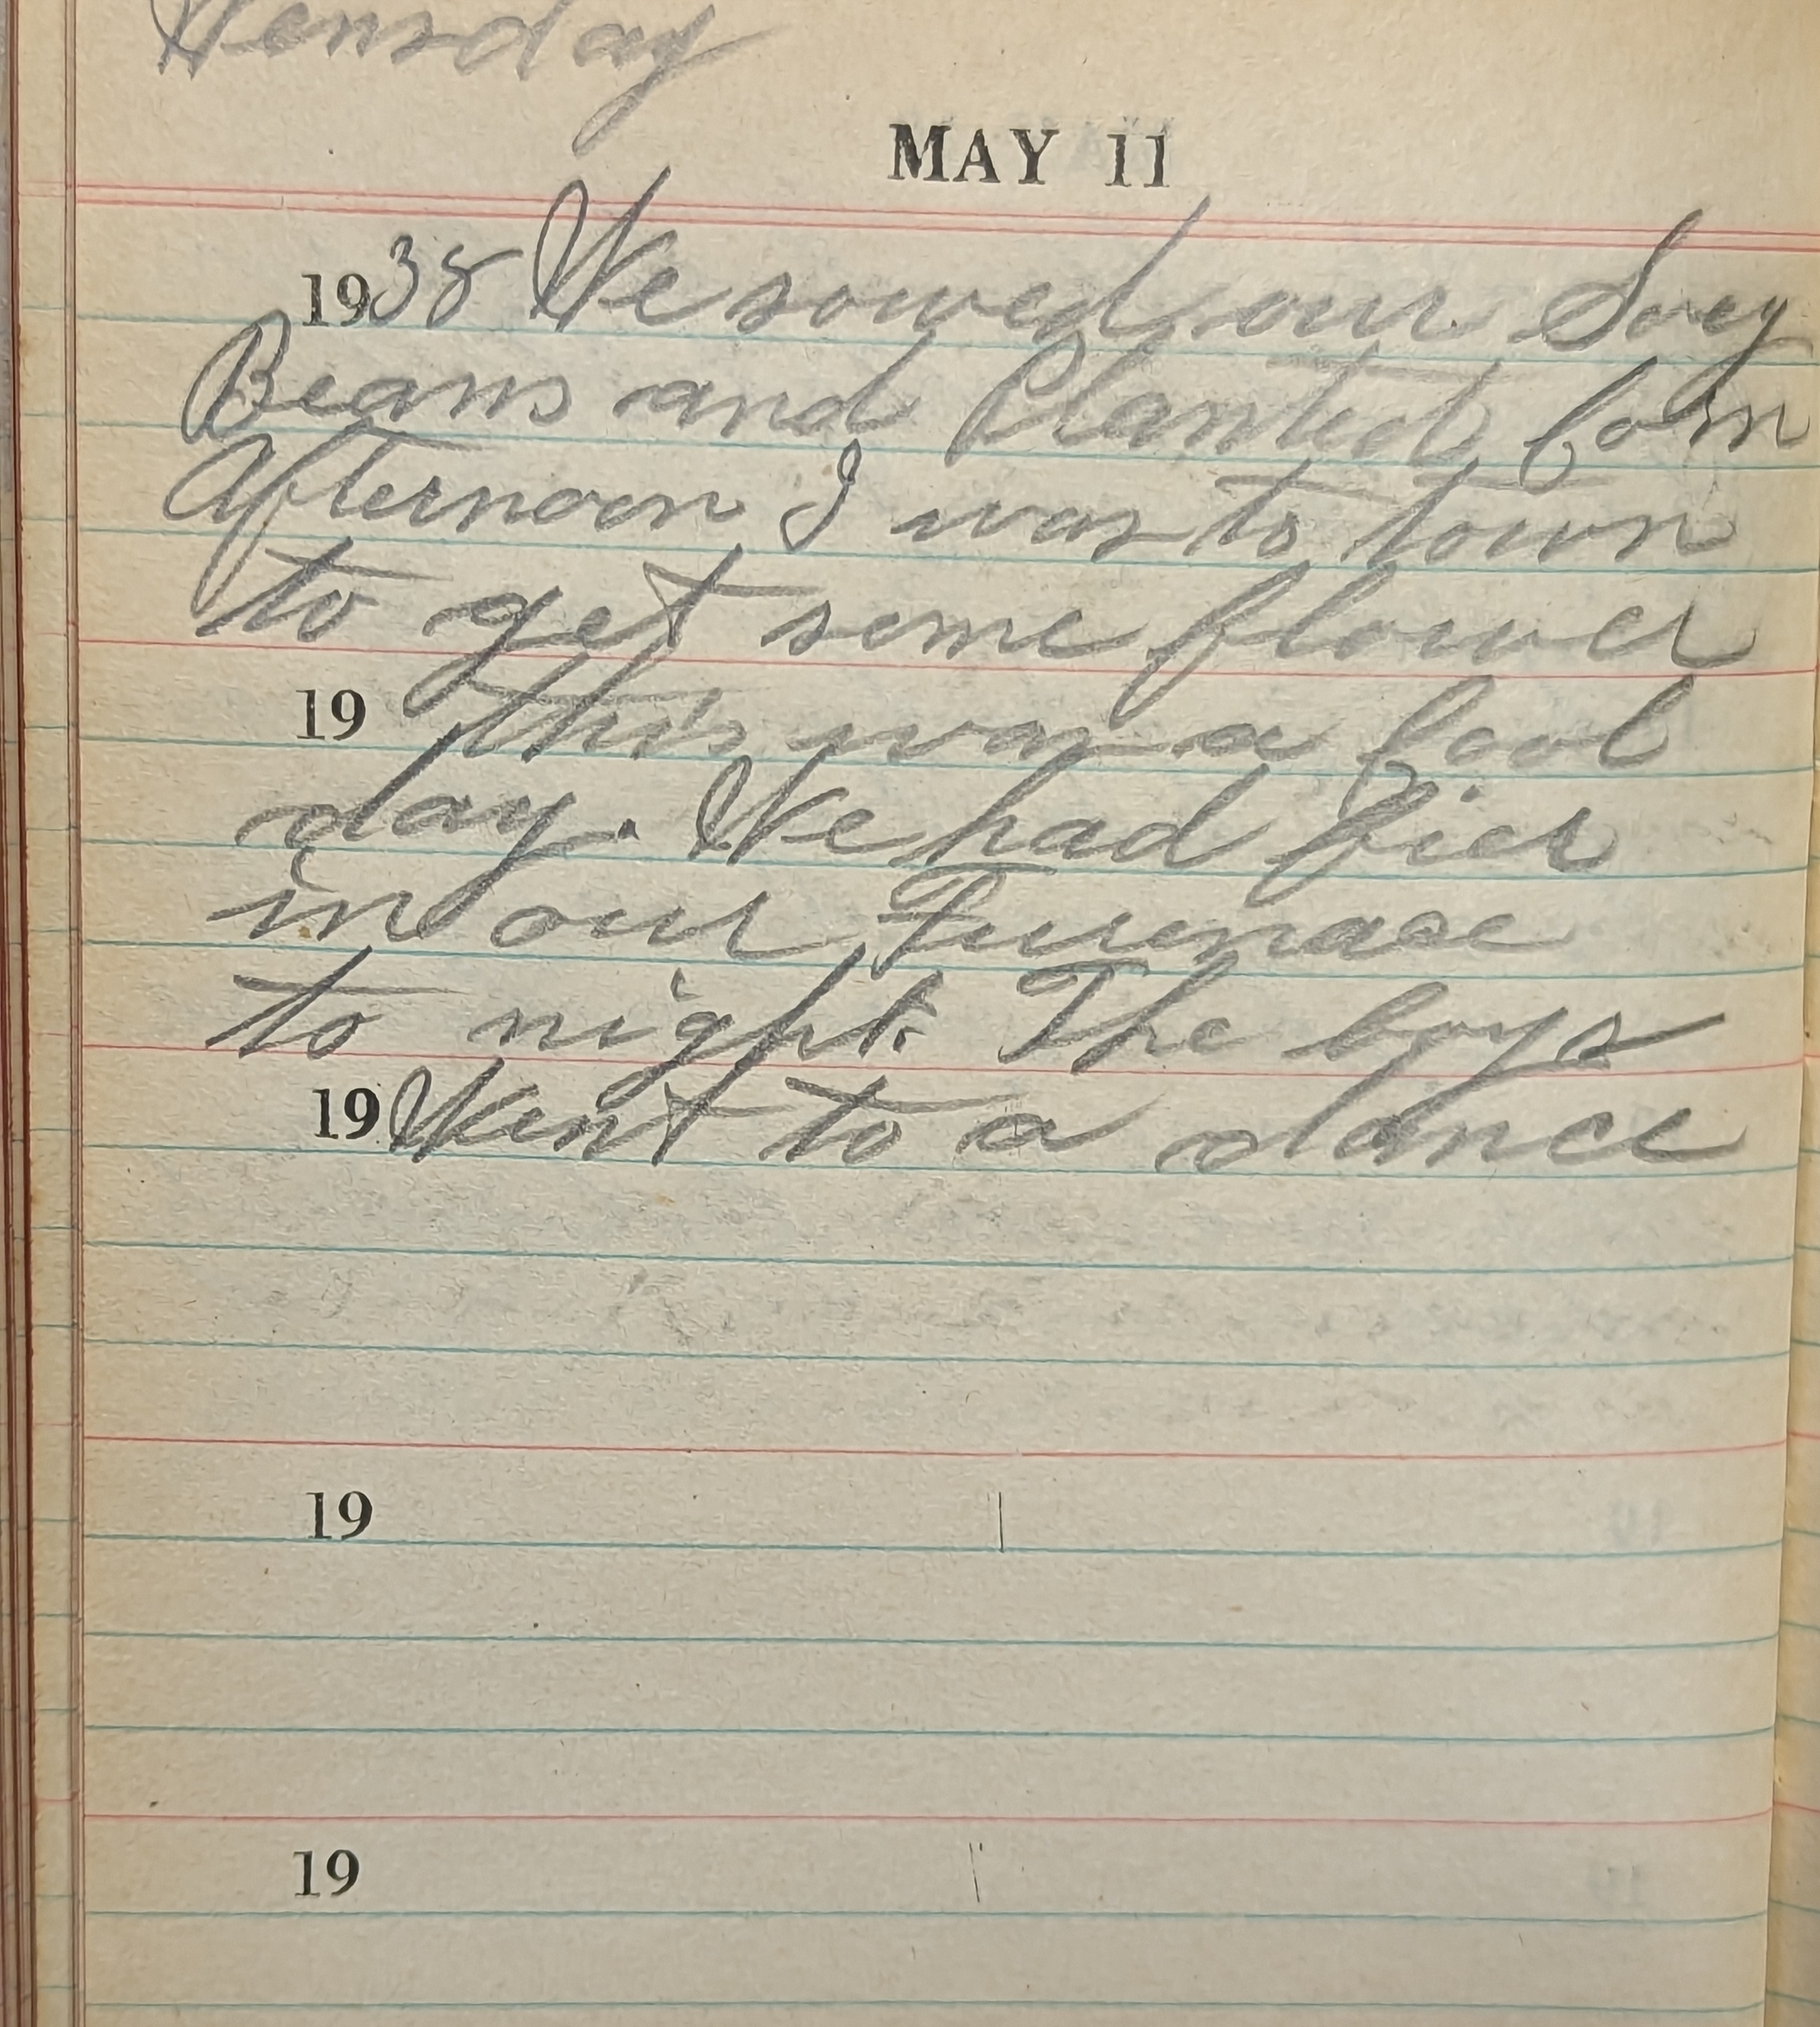 Wensday
MAY 11
1938 We sowed our Soey
Beans and Planted Corn
Afternoon I was to town
to get some flower
19 this was a Cool
day. We had fier
in our Furenace
to night. The boys
19 Went to a dance
19
19